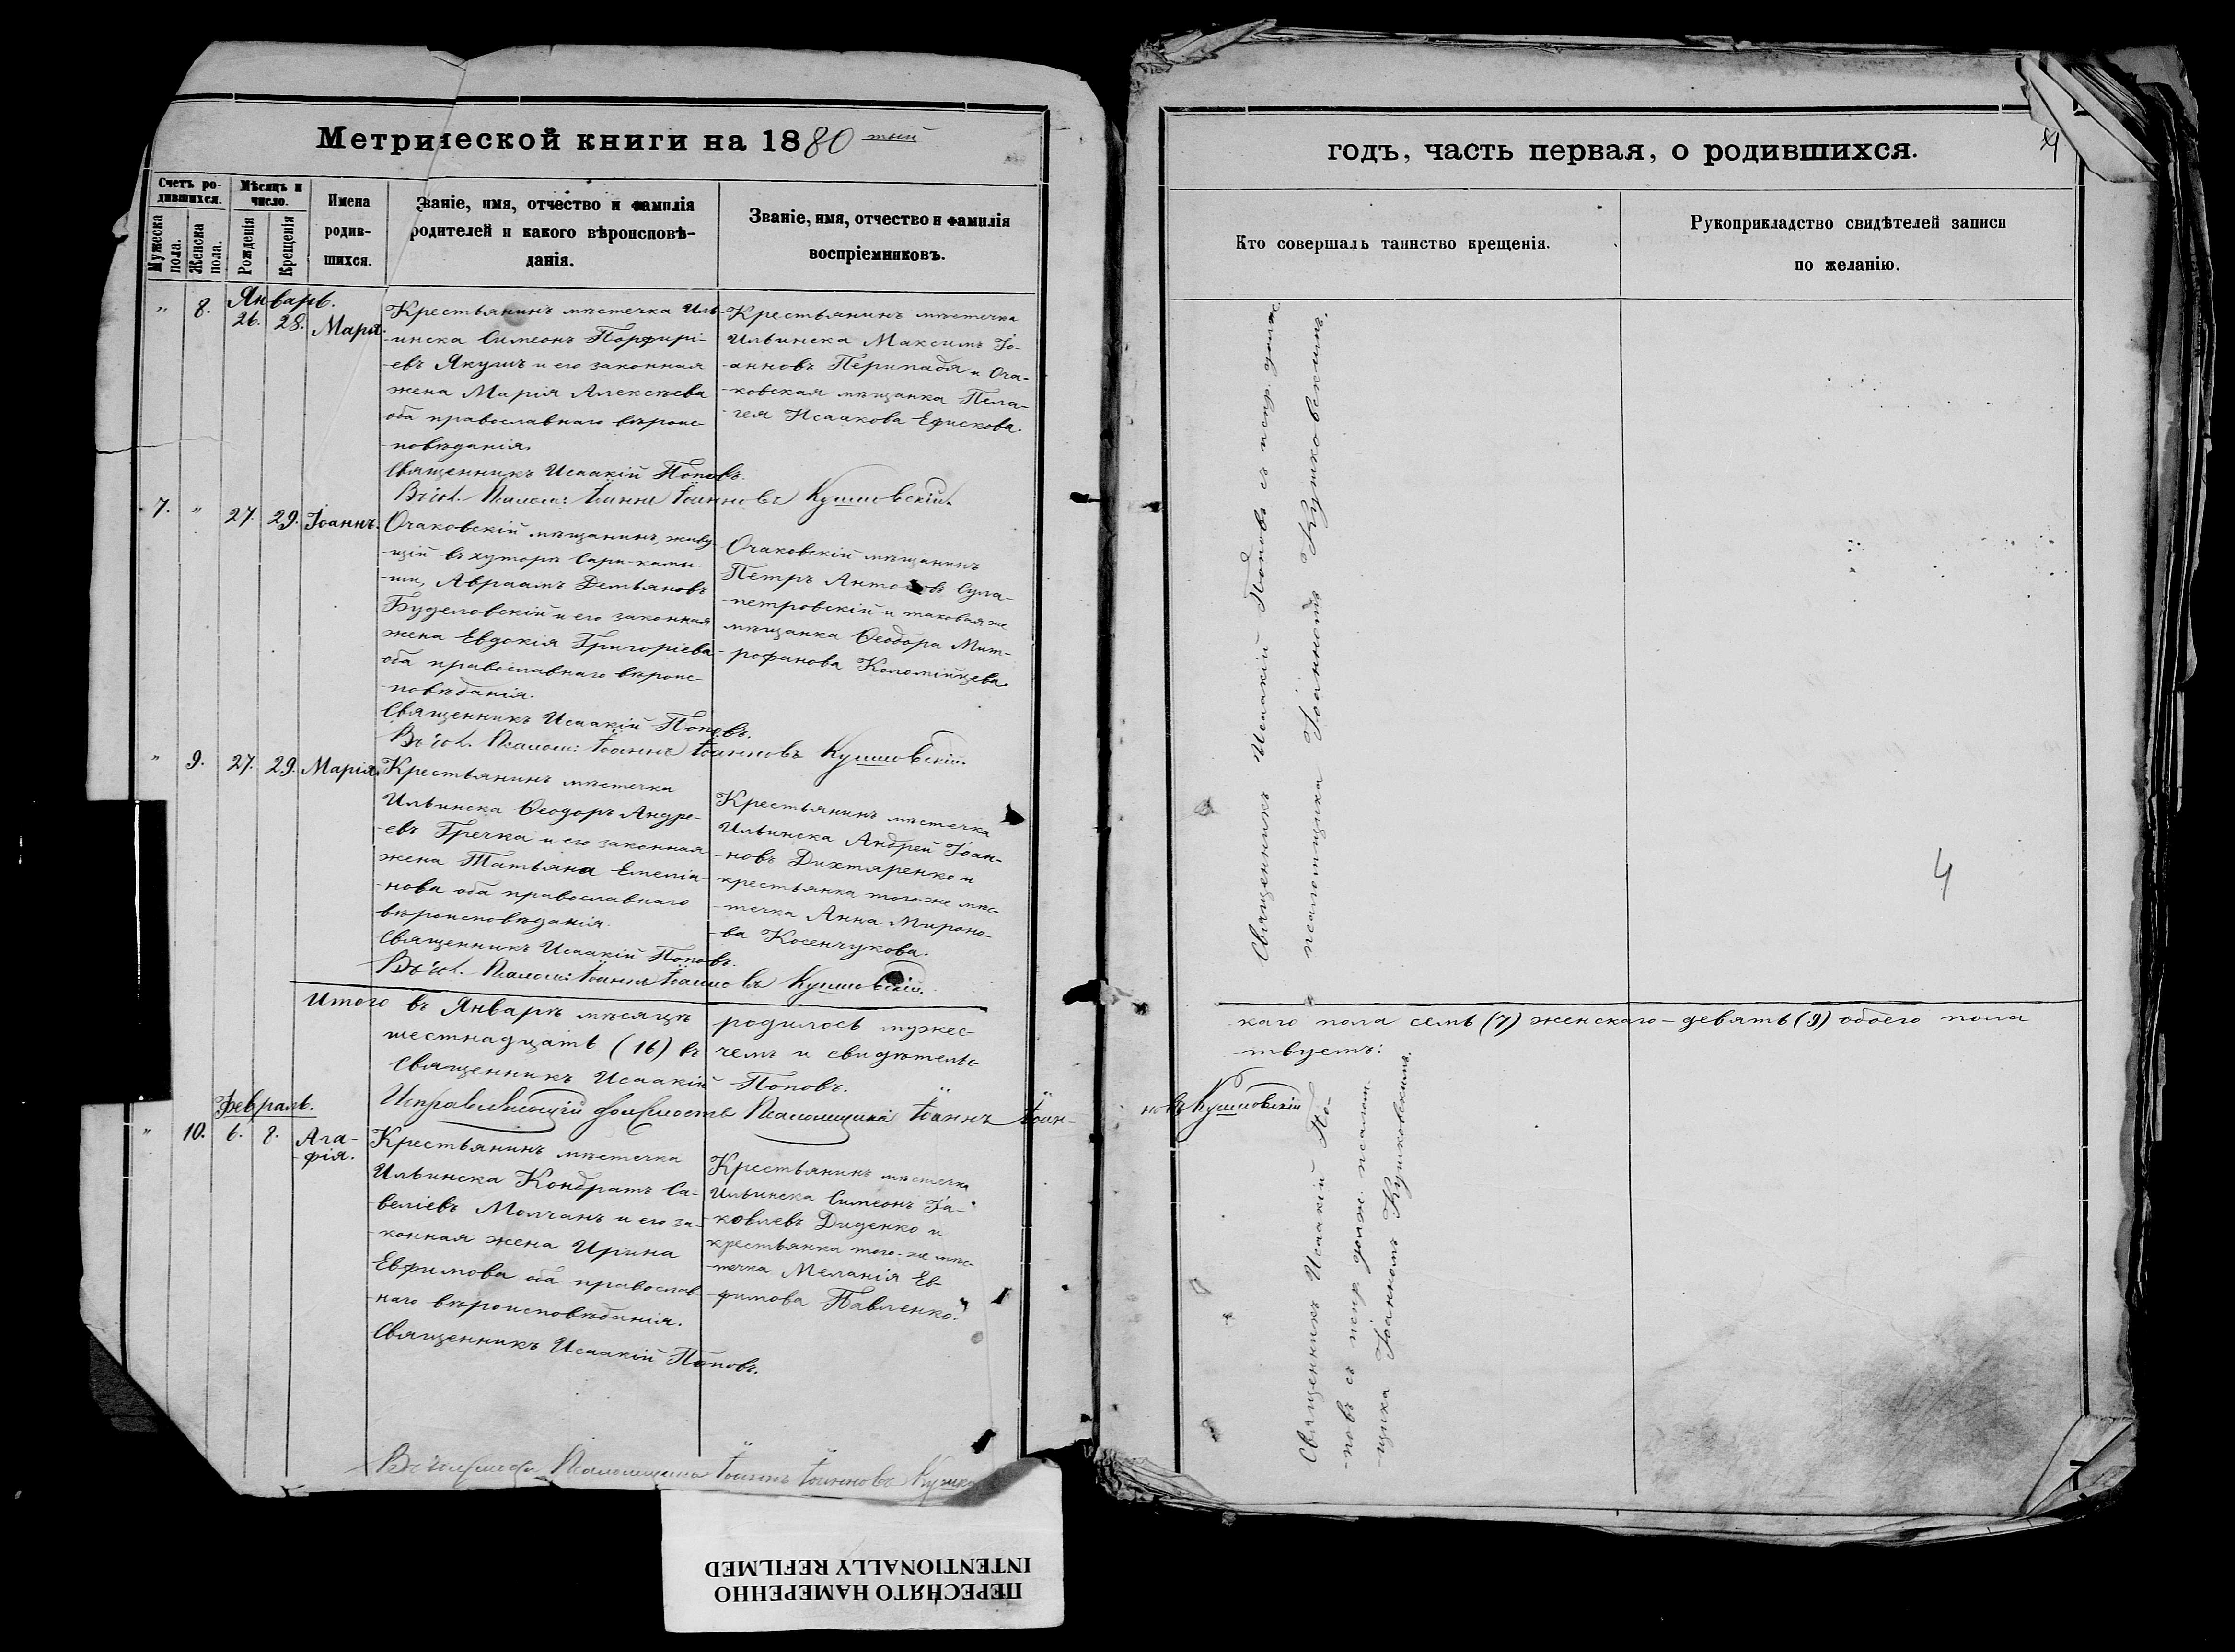 Метрической книги на 1880 тый
Счетъ ро-
дившихся.
Мужеска
пола.
Женска
пола.
Мѣсяцъ и
число.
Рожденія
Крещенія
Имена
родив-
шихся.
Званіе, имя, отчество и фамилія
родителей и какого вѣроисповѣ-
данія.
Званіе, имя, отчество и фамилія
воспріемниковъ.
Январь.
" 8. 26. 28. Марія.
Крестьянинъ мѣстечка Иль-
-инска Симеонъ Порфирі-
-евъ Якушъ и его законная
жена Марія Алексѣева
оба православнаго вѣроис-
-повѣданія.
Священникъ Исаакій Поповъ.
Псалом: Іоаннъ Іоанновъ Кушковскій.
Крестьянинъ мѣстечка
Ильинска Максимъ Іо-
-анновъ Перипадя и Оча-
-ковская мѣщанка Пела-
-гея Исаакова Ефискова.
7. " 27. 29. Іоаннъ.
Очаковскій мѣщанинъ, живу-
-щій въ хуторѣ Сари-камы-
-ши, Авраамъ Демьяновъ
Буделовскій и его законная
жена Евдокія Григоріева
оба православнаго вѣроис-
-повѣданія.
Священникъ Исаакій Поповъ.
Псалом: Іоаннъ Іоанновъ Кушковскій.
Очаковскій мѣщанинъ
Петръ Антоновъ Сула-
-петровскій и таковая же
мѣщанка Ѳеодора Мит-
-рофанова Коломійцева.
" 9. 27. 29. Марія.
Крестьянинъ мѣстечка
Ильинска Ѳеодоръ Андре-
-евъ Гречка и его законная
жена Татьяна Емелія-
-нова оба православнаго
вѣроисповѣданія.
Священникъ Исаакій Поповъ.
Псалом: Іоаннъ Іоанновъ Кушковскій.
Крестьянинъ мѣстечка
Ильинска Андрей Іоан-
-новъ Дихтяренко и
крестьянка того-же мѣс-
-течка Анна Мироно-
-ва Косенчукова.
Итого въ Январѣ мѣсяцѣ родилось мужес-
шестнадцать (16) въ чемъ и свидѣтельс-
Священникъ Исаакій Поповъ.
Исправляющій должность Псаломщика Іоаннъ Іоан-
Февраль.
" 10. 6. 8. Ага-
-фія.
Крестьянинъ мѣстечка
Ильинска Кондратъ Са-
-веліевъ Молчанъ и его за-
-конная жена Ирина
Евфимова оба православ-
-наго вѣроисповѣданія.
Священникъ Исаакій Поповъ.
Псаломщика Іоаннъ Іоанновъ
Крестьянинъ мѣстечка
Ильинска Симеонъ Іа-
-ковлевъ Диденко и
крестьянка того-же мѣс-
-течка Меланія Ев-
-фимова Павленко.
годъ, часть первая, о родившихся.
4
Кто совершалъ таинство крещенія.
Рукоприкладство свидѣтелей записи
по желанію.
Священникъ Исаакій Поповъ съ испр. долж.
псаломщика Іоанномъ Кушковскимъ.
4
-каго пола семь (7) женскаго - девять (9) обоего пола
-твуетъ:
новъ Кушковскій
Священникъ Исаакій По-
-повъ съ испр. долж. псалом-
-щика Іоанномъ Кушковскимъ.
ПЕРЕСНЯТО НАМЕРЕННО
INTENTIONALLY REFILMED